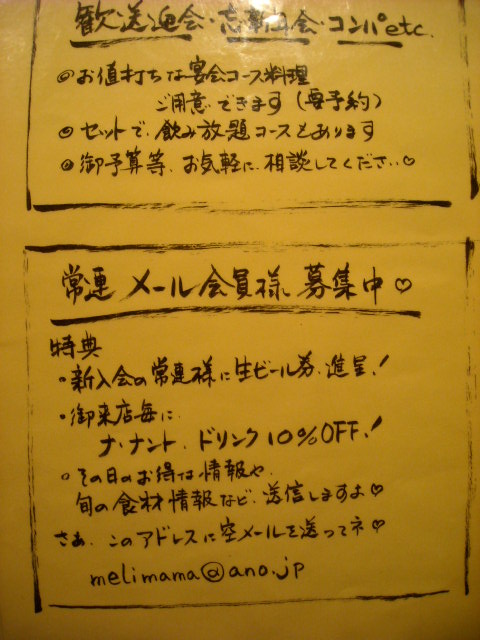 歓送迎会・忘年会・コンパetc.
◎お値打ちな宴会コース料理
ご用意できます(要予約)
◎セットで、飲み放題コースもあります
◎御予算等、お気軽に、相談してください♡
常連 メール会員様 募集中♡
特典
・新入会の常連様に生ビール券、進呈!
・御来店毎に
ナ・ナント、ドリンク10%OFF!
・その日のお得な情報や、
旬の食材情報など、送信しますよ♡
さぁ、このアドレスに空メールを送ってネ♡
melimama@ano.jp